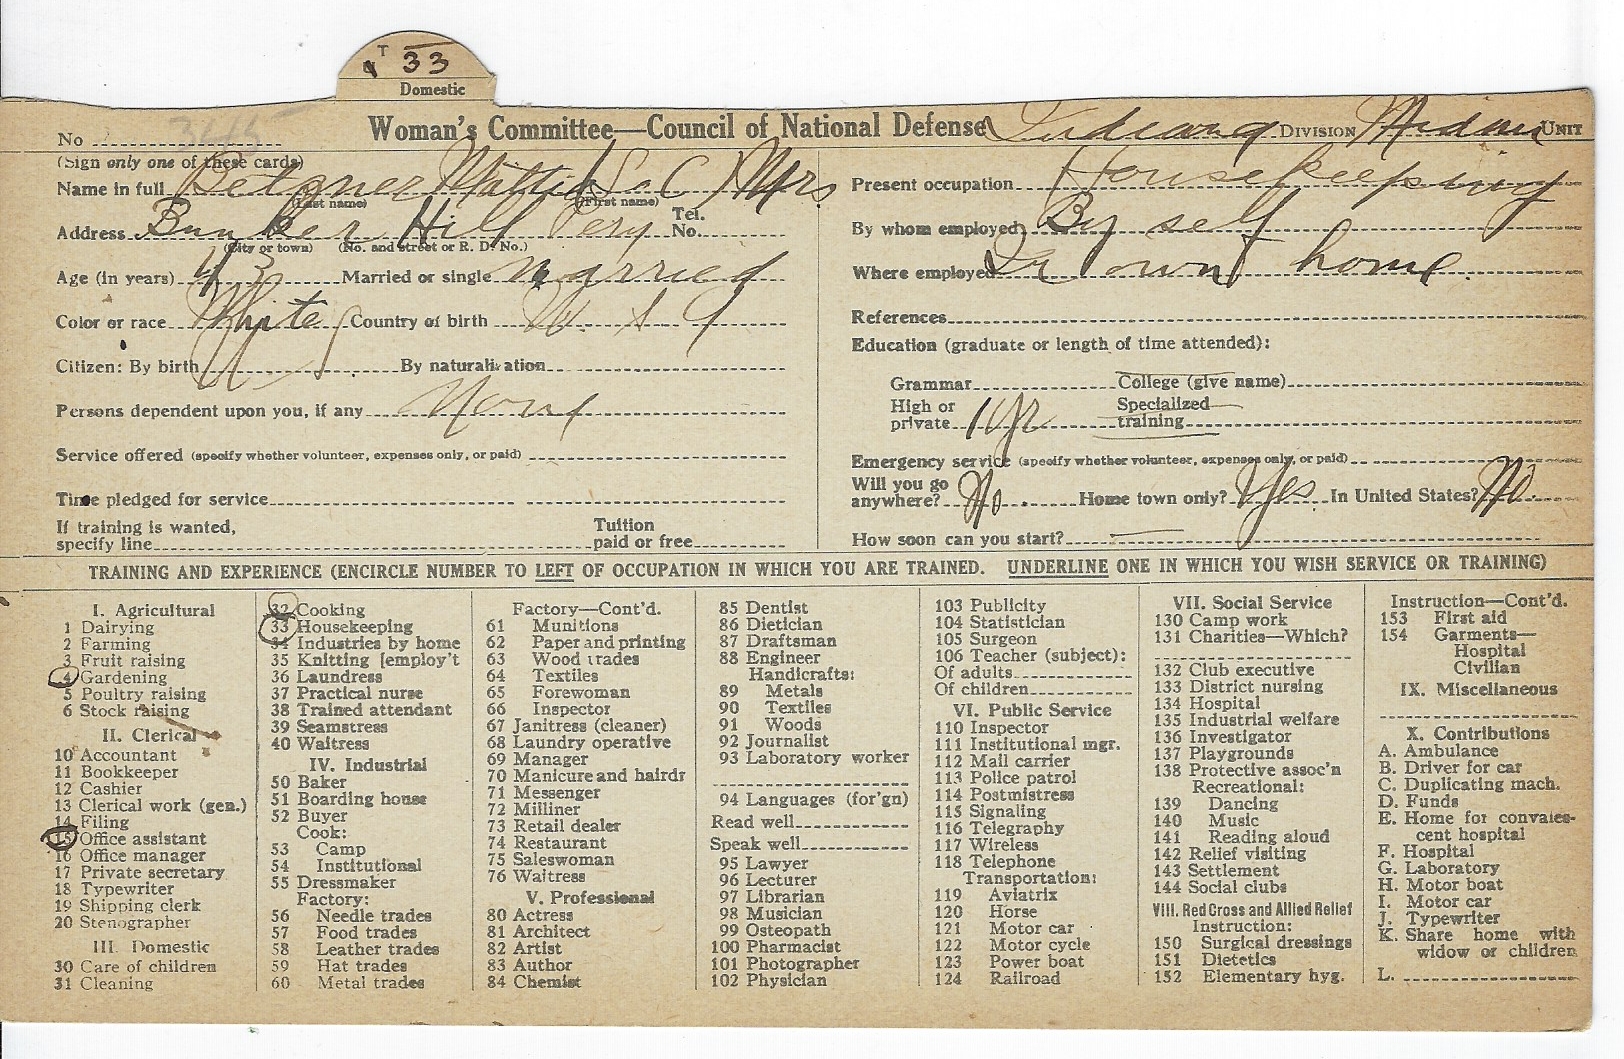 T 33
Domestic
No 3445
Woman's Committee—Council of National Defense Indiana DIVISION UNIT
(Sign only one of these cards)
Name in full Mrs
(Last name) (First name)
Address Bunker Hill Tel. No.
(City or town) (No. and street or R. D. No.)
Age (in years) 43 Married or single married
Color or race White Country of birth U. S a
Citizen: By birth U. S. By naturalization
Persons dependent upon you, if any None
Service offered (specify whether volunteer, expenses only, or paid)
Time pledged for service
If training is wanted,
specify line Tuition paid or free
Present occupation Housekeeping
By whom employed By self
Where employed In own home.
References
Education (graduate or length of time attended):
Grammar College (give name)
High or private 1 yr Specialized training
Emergency service (specify whether volunteer, expenses only, or paid)
Will you go anywhere? No. Home town only? Yes In United States? No.
How soon can you start?
TRAINING AND EXPERIENCE (ENCIRCLE NUMBER TO LEFT OF OCCUPATION IN WHICH YOU ARE TRAINED. UNDERLINE ONE IN WHICH YOU WISH SERVICE OR TRAINING)
I. Agricultural
1 Dairying
2 Farming
3 Fruit raising
4 Gardening
5 Poultry raising
6 Stock raising
II. Clerical
10 Accountant
11 Bookkeeper
12 Cashier
13 Clerical work (gen.)
14 Filing
15 Office assistant
16 Office manager
17 Private secretary
18 Typewriter
19 Shipping clerk
20 Stenographer
III. Domestic
30 Care of children
31 Cleaning
32 Cooking
33 Housekeeping
34 Industries by home
35 Knitting [employ't
36 Laundress
37 Practical nurse
38 Trained attendant
39 Seamstress
40 Waitress
IV. Industrial
50 Baker
51 Boarding house
52 Buyer
Cook:
53 Camp
54 Institutional
55 Dressmaker
Factory:
56 Needle trades
57 Food trades
58 Leather trades
59 Hat trades
60 Metal trades
Factory—Cont'd.
61 Munitions
62 Paper and printing
63 Wood trades
64 Textiles
65 Forewoman
66 Inspector
67 Janitress (cleaner)
68 Laundry operative
69 Manager
70 Manicure and hairdr
71 Messenger
72 Milliner
73 Retail dealer
74 Restaurant
75 Saleswoman
76 Waitress
V. Professional
80 Actress
81 Architect
82 Artist
83 Author
84 Chemist
85 Dentist
86 Dietician
87 Draftsman
88 Engineer
Handicrafts:
89 Metals
90 Textiles
91 Woods
92 Journalist
93 Laboratory worker
94 Languages (for'gn)
Read well
Speak well
95 Lawyer
96 Lecturer
97 Librarian
98 Musician
99 Osteopath
100 Pharmacist
101 Photographer
102 Physician
103 Publicity
104 Statistician
105 Surgeon
106 Teacher (subject):
Of adults
Of children
VI. Public Service
110 Inspector
111 Institutional mgr.
112 Mail carrier
113 Police patrol
114 Postmistress
115 Signaling
116 Telegraphy
117 Wireless
118 Telephone
Transportation:
119 Aviatrix
120 Horse
121 Motor car
122 Motor cycle
123 Power boat
124 Railroad
VII. Social Service
130 Camp work
131 Charities—Which?
132 Club executive
133 District nursing
134 Hospital
135 Industrial welfare
136 Investigator
137 Playgrounds
138 Protective assoc'n
Recreational:
139 Dancing
140 Music
141 Reading aloud
142 Relief visiting
143 Settlement
144 Social clubs
VIII. Red Cross and Allied Relief
Instruction:
150 Surgical dressings
151 Dietetics
152 Elementary hyg.
Instruction—Cont'd.
153 First aid
154 Garments—
Hospital
Civilian
IX. Miscellaneous
X. Contributions
A. Ambulance
B. Driver for car
C. Duplicating mach.
D. Funds
E. Home for convales-
cent hospital
F. Hospital
G. Laboratory
H. Motor boat
I. Motor car
J. Typewriter
K. Share home with
widow or children
L.